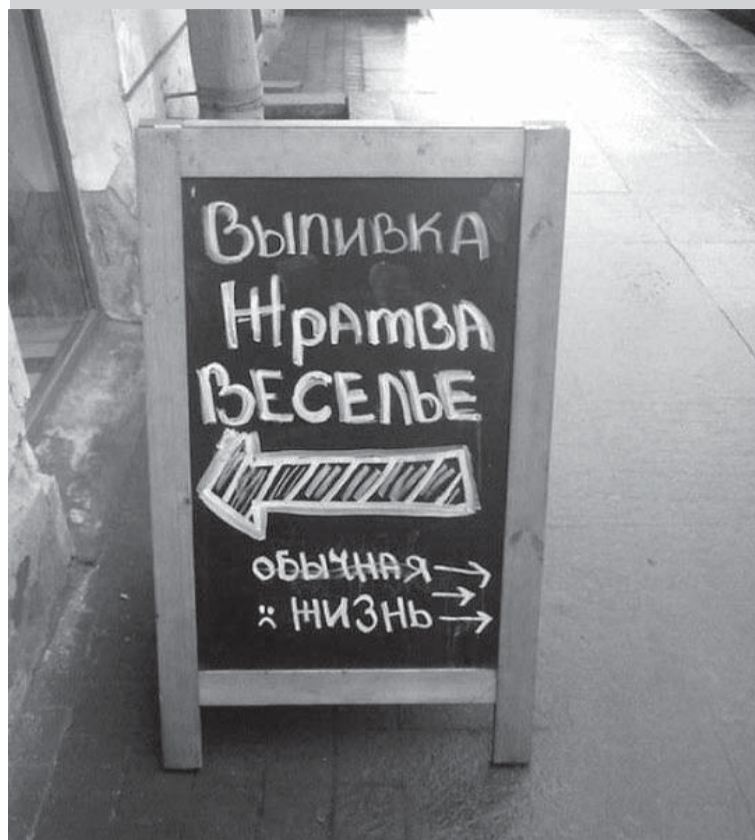 Выпивка
Жратва
ВЕСЕЛЬЕ
ОБЫЧНАЯ →
:( ЖИЗНЬ →